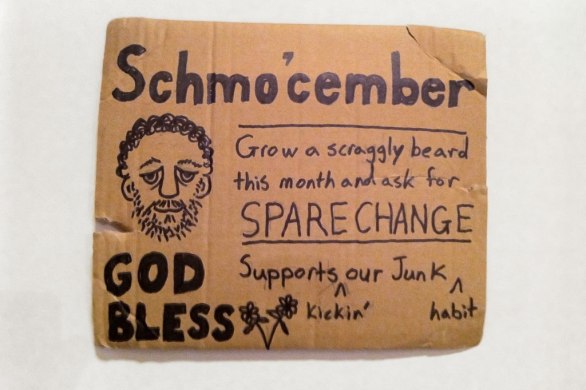 Schmo'cember
Grow a scraggly beard
this month and ask for
SPARE CHANGE
GOD
BLESS
Supports our Junk
kickin' habit